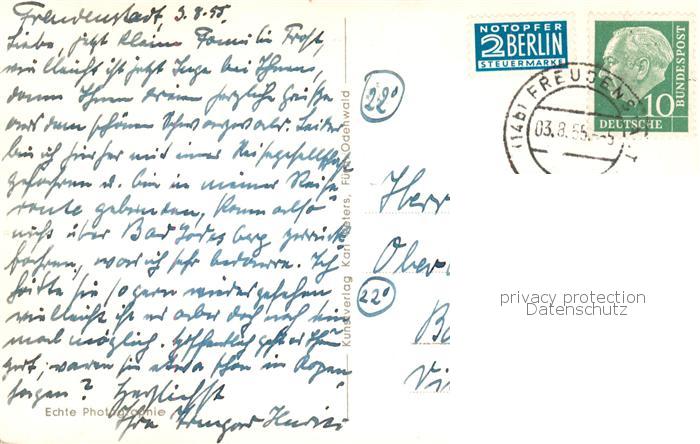 Freudenstadt, 3.8.55.
Liebe, jetzt kleine Familie Frost,
vielleicht ist jetzt Inge bei Ihnen,
dann Ihnen dreien herzliche Grüße
aus dem schönen Schwarzwald. Leider
bin ich hierher mit einer Reisegesellschaft
gefahren u. bin in meiner Reise
route gebunden, kann also
nicht über Bad Godesberg zurück
fahren, was ich sehr bedaure. Ich
hätte Sie so gern wiedergesehen
vielleicht ist es aber doch noch ein
mal möglich. Hoffentlich geht es Ihnen
gut, waren Sie etwa schon in Kopen
hagen? Herzlichst
Ihre Irmgard
Echte Photographie
Kunstverlag Karl Peters, Odenwald
NOTOPFER
2 BERLIN
STEUERMARKE
DEUTSCHE BUNDESPOST
10
(14b) FREUDENSTADT
03.8.55.
22a
Herr
Ober
22a
B
Vi
privacy protection
Datenschutz